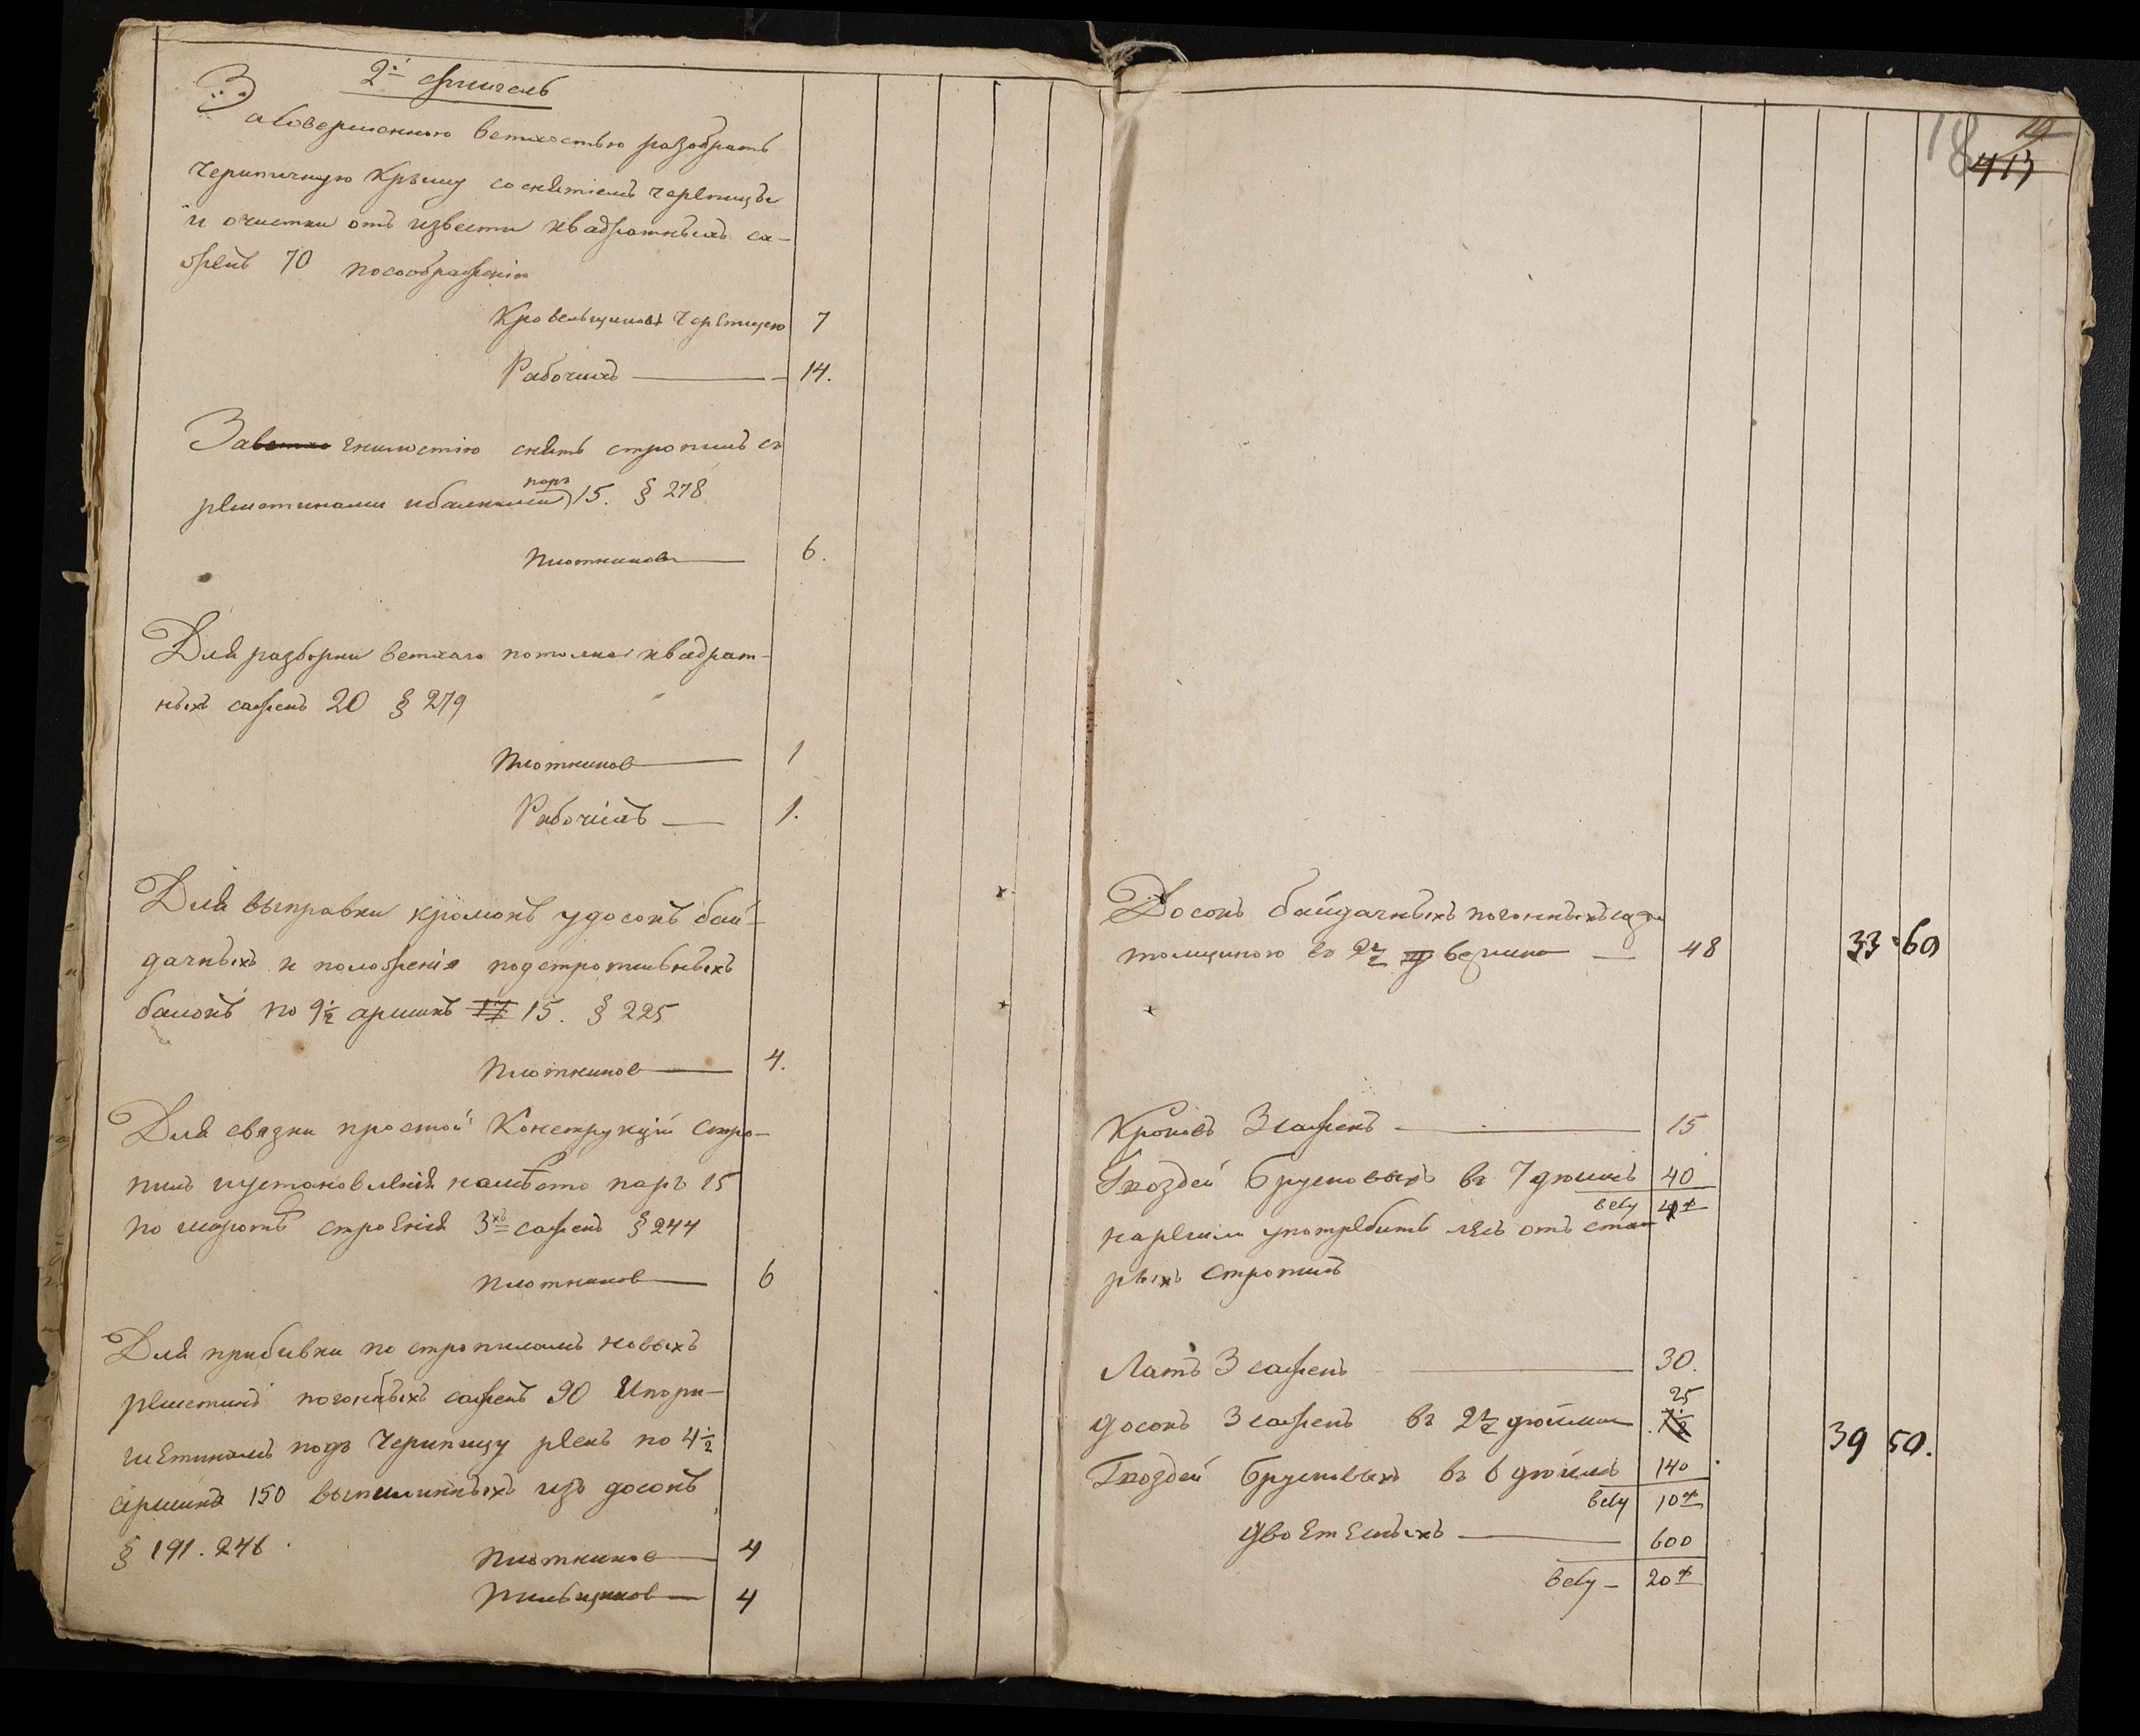 2й флигель
За совершенною ветхостью разобрать
черепичную крышу со снятіемъ черепицы
и очистки отъ извести квадратныхъ са-
жень 70 по соображенію
Кровельщиковъ черепицею 7
Рабочихъ 14.
За ветхо гнилостію снять стропилъ съ
решетинами и балками паръ 15. § 278
Плотниковъ 6.
Для разборки ветхаго потолка квадрат-
ныхъ сажень 20 § 279
Плотниковъ 1
Рабочихъ 1.
Для выправки кромокъ у досокъ бай-
дачныхъ и положенія подстропильныхъ
балокъ по 9½ аршинъ 17 15. § 225
Плотниковъ 4.
Для связки простой Конструкціи стро-
пилъ и установленія на место паръ 15
по широтѣ строенія 3хъ сажень § 244
Плотниковъ 6
Для прибивки по стропиламъ новыхъ
решетинъ погонныхъ сажень 90 И по ри-
шетинамъ подъ Черипицу реекъ по 4½
аршина 150 выпилинныхъ изъ досокъ
§ 191. 246.
Плотниковъ 4
Пильщиковъ 4
18 19
413
Досокъ байдачныхъ погонныхъ саже
толщиною въ 2½ вершка 48 33 60
Кроковъ 3 сажень 15
Гвоздей брусковыхъ въ 7 дюймъ 40
весу 4
на регили употребить лесъ отъ ста-
рыхъ стропилъ
Латъ 3 сажень 30.
досокъ 3 сажень въ 2½ дюйма 25 39 50.
Гвоздей брусковыхъ въ 6 дюймъ 140
весу 10
двоетесныхъ 600
весу 20